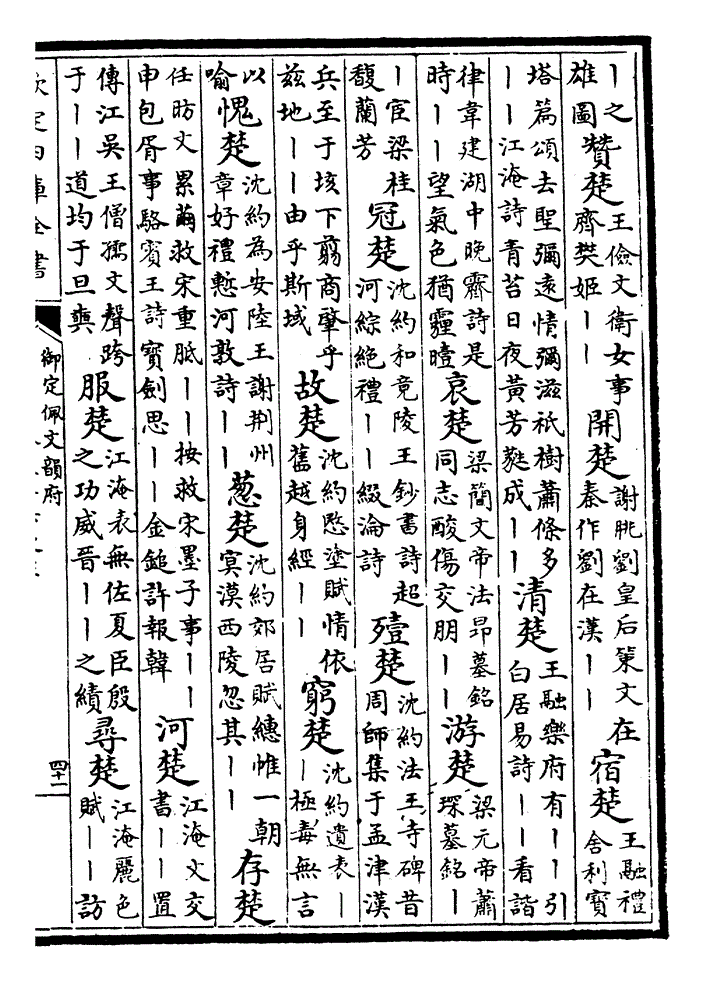 丨之雄圖贊楚王儉文衛女事齊樊姬丨丨開楚謝朓劉皇后䇿文在秦作劉在漢丨丨宿楚王融禮舍利寶
塔篇頌去聖彌遠情彌滋祇樹蕭條多丨丨江淹詩青苔日夜黄芳蕤成丨丨清楚王融樂府有丨丨引白居易詩丨丨看諧
律韋建湖中晚霽詩是時丨丨望氣色猶霾曀哀楚梁簡文帝法昂墓銘同志酸傷交朋丨丨游楚梁元帝蕭琛墓銘丨
丨宦梁桂馥蘭芳冠楚沈約和竟陵王鈔書詩超河綜絶禮丨丨綴淪詩殪楚沈約法王寺碑昔周師集于孟津漢
兵至于垓下翦商肇乎兹地丨丨由乎斯域故楚沈約愍塗賦情依舊越身經丨丨窮楚沈約遺表丨丨極毒無言
以喻愧楚沈約為安陸王謝荆州章好禮慙河敦詩丨丨葱楚沈約郊居賦繐帷一朝冥漠西陵忽其丨丨存楚
任昉文累繭救宋重胝丨丨按救宋墨子事丨丨申包胥事駱賓王詩寶劍思丨丨金鎚許報韓河楚江淹文交書丨丨置
傳江吳王僧孺文聲跨于丨丨道均于旦奭服楚江淹表無佐夏臣殷之功威晉丨丨之績尋楚江淹麗色賦丨丨訪
欽定四庫全書
御定佩文韻府
四十二